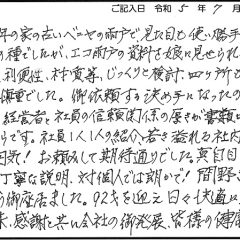 ご記入日 令和 5 年 7 月
年の家の古いベニヤの雨戸で見た目も使い勝手
の種でしたが、エコ雨戸の資料を娘に見せられ
利便性、材質等、じっくりと検討、四ヶ所とも
慎重でした。御依頼する決め手になったの
経営者と社員の信頼関係の厚さが
らです。社員1人1人の紹介、若さ溢れる社内
お頼みして期待通りでした。真面目
丁寧な説明、対個人では朗かで! 間野さ
う御座居ました。92才を迎え日々快適に
感謝と共に会社の御発展、皆様の健康